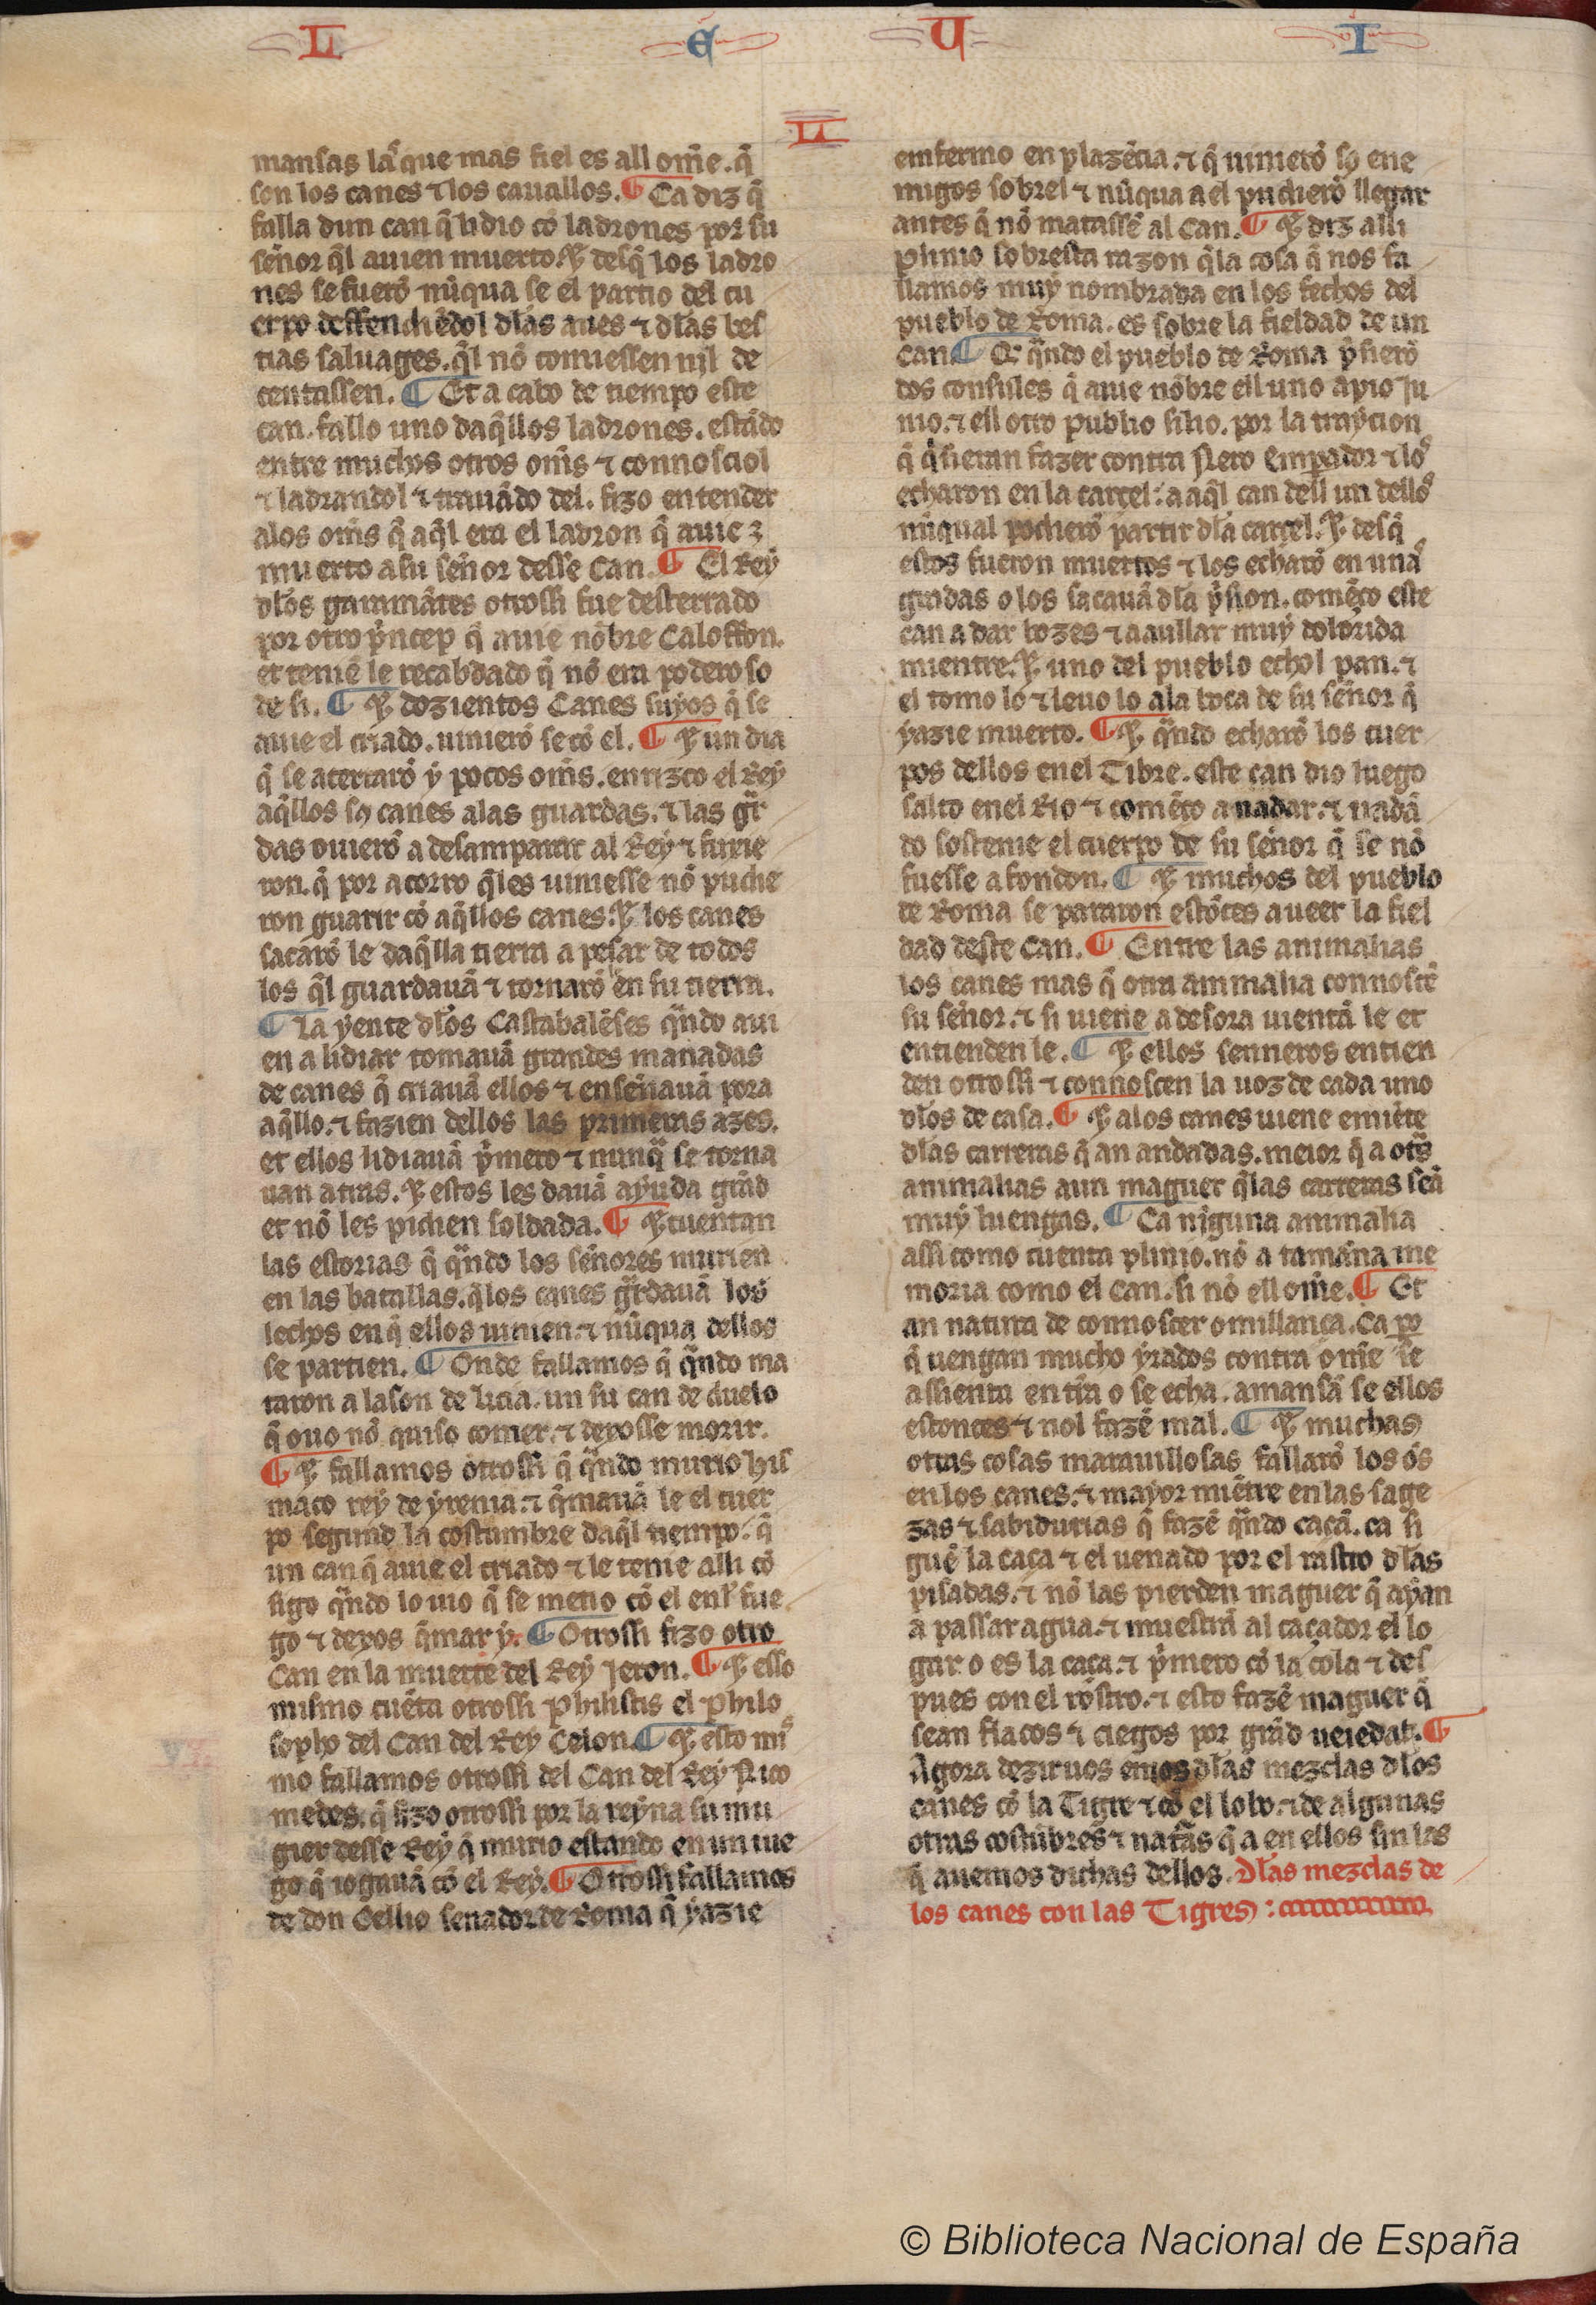 L E U I
LI
mansas la que mas fiel es all om̃e. q̃
son los canes ⁊ los cauallos. ¶ Ca diz q̃
falla dun can q̃ lidio cõ ladrones por su
señor q̃l auien muerto. Ɛ desq̃ los ladro
nes se fuerõ nũqua se el partio del cu
erpo deffendiẽdol dlas aues ⁊ dlas bes
tias saluages. q̃l nõ comiessen nil de
centassen. ¶ Et a cabo de tiempo este
can. fallo uno daq̃llos ladrones. estãdo
entre muchos otros om̃s ⁊ connosciol
⁊ ladrandol ⁊ trauãdo del. fizo entender
a los om̃s q̃ aq̃l era el ladron q̃ auie
muerto a su señor desse Can. ¶ El Rey
dlos garamãtes otrossi fue desterrado
por otro pͥncep q̃ auie nõbre Caloffon.
et teniẽ le recabdado q̃ nõ era poderoso
de si. ¶ Ɛ dozientos Canes suyos q̃ se
auie el criado. uinierõ se cõ el. ¶ Ɛ un dia
q̃ se acertarõ y pocos om̃s. enrizco el Rey
aq̃llos sos canes a las guardas. ⁊ las gͣr
das ouierõ a desamparar al Rey ⁊ fuxie
ron. q̃ por acorro q̃les uiniesse nõ pudie
ron guarir cõ aq̃llos canes. Ɛ los canes
sacarõ le daq̃lla tierra a pesar de todos
los q̃l guardauã ⁊ tornarõ en su tierra.
¶ La yente dlos Castabalẽses qͣndo aui
en a lidiar tomauã grandes manadas
de canes q̃ criauã ellos ⁊ enseñauã pora
aq̃llo. ⁊ fazien dellos las primeras azes.
et ellos lidiauã pͥmero ⁊ nunqͣ se torna
uan atras. Ɛ estos les dauã ayuda grãd
et nõ les pidien soldada. ¶ Ɛ cuentan
las estorias q̃ qͣndo los señores murien
en las batallas. q̃los canes gͣrdauã los
lechos en q̃ ellos iazien. ⁊ nũqua dellos
se partien. ¶ Onde fallamos q̃ qͣndo ma
taron a Iason de Licia. un su can de duelo
q̃ ouo nõ quiso comer. ⁊ dexosse morir.
¶ Ɛ fallamos otrossi q̃ qͣndo murio Lis
maco rey de yrenia. ⁊ q̃mauã le el cuer
po segund la costumbre daq̃l tiempo. q̃
un can q̃ auie el criado ⁊ le tenie alli cõ
sigo qͣndo lo uio q̃ se metio cõ el enl fue
go ⁊ dexos q̃mar y. ¶ Otrossi fizo otro
Can en la muerte del Rey Jeron. ¶ Ɛ esso
mismo cuẽta otrossi Philistis el philo
sopho del Can del Rey Celon. ¶ Ɛ esto mis
mo fallamos otrossi del Can del Rey Nico
medes. q̃ fizo otrossi por la reyna su mu
gier desse Rey q̃ murio estando en un iue
go q̃ iogauã cõ el Rey. ¶ Otrossi fallamos
de don Cellio senador de Roma q̃ yazie
enfermo en plazẽcia. ⁊ q̃ uinierõ sos ene
migos sobrel ⁊ nũqua a el pudierõ llegar
antes q̃ nõ matassẽ al Can. ¶ Ɛ diz alli
plinio sobresta razon q̃la cosa q̃ nos fa
llamos muy nombrada en los fechos del
pueblo de Roma. es sobre la fieldad de un
Can ¶ Et qͣndo el pueblo de Roma pͥsierõ
dos consules q̃ auie nõbre ell uno apio Iu
nio. ⁊ ell otro publio silio. por la traycion
q̃ q̃sieran fazer contra Nero Emperador ⁊ los
echaron en la carcel: a aq̃l can dell un dellos
nũqual podierõ partir dla carcel. Ɛ desq̃
estos fueron muertos ⁊ los echarõ en unas
gradas o los sacauã dla pͥsion. comẽço este
can a dar bozes ⁊ a aullar muy dolorida
mientre. Ɛ uno del pueblo echol pan. ⁊
el tomo lo ⁊ leuo lo a la boca de su señor q̃
yazie muerto. ¶ Ɛ qͣndo echarõ los cuer
pos dellos en el Tibre. este can dio luego
salto en el Rio ⁊ comẽço a nadar. ⁊ nadã
do sostenie el cuerpo de su señor q̃ se nõ
fuesse a fondon. ¶ Ɛ muchos del pueblo
de Roma se pararon estõces a ueer la fiel
dad deste Can. ¶ Entre las animalias
los canes mas q̃ otra animalia connoscẽ
su señor. ⁊ si uiene a desora uientã le et
entienden le. ¶ Ɛ ellos senneros entien
den otrossi ⁊ connoscen la uoz de cada uno
dlos de casa. ¶ Ɛ a los canes uiene emiẽte
dlas carreras q̃ an andadas. meior q̃ a otͣs
animalias aun maguer q̃las carreras seã
muy luengas. ¶ Ca niguna animalia
assi como cuenta plinio. nõ a tamaña me
moria como el Can. si nõ ell om̃e. ¶ Et
an natura de connoscer omillança. Ca po
q̃ uengan mucho yrados contra om̃e se
assienta en tr̃ra o se echa. amansã se ellos
estonces ⁊ nol fazẽ mal. ¶ Ɛ muchas
otras cosas marauillosas fallarõ los õs
en los canes. ⁊ mayor miẽtre en las sage
zas ⁊ sabidurias q̃ fazẽ qͣndo caçã. ca si
guẽ la caça ⁊ el uenado por el rastro dlas
pisadas. ⁊ nõ las pierden maguer q̃ ayan
a passar agua. ⁊ muestrã al caçador el lo
gar o es la caça. ⁊ pͥmero cõ la cola ⁊ des
pues con el rostro. ⁊ esto fazẽ maguer q̃
sean flacos ⁊ ciegos por grãd ueiedat. ¶
Agora deziruos emos dlas mezclas dlos
canes cõ la Tigre ⁊ cõ el lobo. ⁊ de algunas
otras costũbres ⁊ nat̃as q̃ a en ellos sin las
q̃ auemos dichas dellos. Dlas mezclas de
los canes con las Tigres :
© Biblioteca Nacional de España